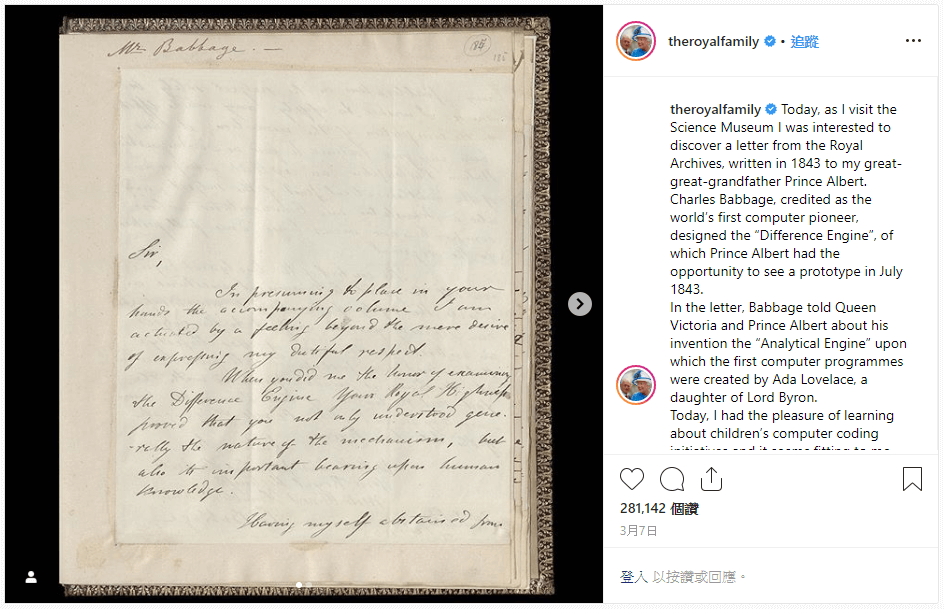 Mr Babbage. —
185
185
Sir,
In presuming to place in your
hands the accompanying volume I am
actuated by a feeling beyond the mere desire
of expressing my dutiful respect.
When you did me the honor of examining
the Difference Engine Your Royal Highness
proved that you not only understood gene-
-rally the nature of the mechanism, but
also its important bearing upon human
knowledge.
Having myself abstained from
theroyalfamily • 追蹤
theroyalfamily Today, as I visit the
Science Museum I was interested to
discover a letter from the Royal
Archives, written in 1843 to my great-
great-grandfather Prince Albert.
Charles Babbage, credited as the
world's first computer pioneer,
designed the “Difference Engine”, of
which Prince Albert had the
opportunity to see a prototype in July
1843.
In the letter, Babbage told Queen
Victoria and Prince Albert about his
invention the “Analytical Engine” upon
which the first computer programmes
were created by Ada Lovelace, a
daughter of Lord Byron.
Today, I had the pleasure of learning
about children's computer coding
initiatives and it seems fitting to me
281,142 個讚
3月7日
登入 以按讚或回應。